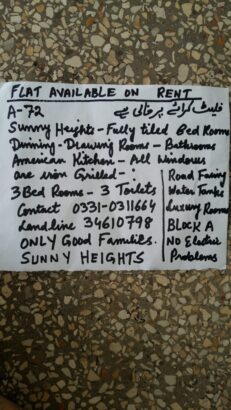 FLAT AVAILABLE ON RENT
A-72 فلیٹ کرائے پر خالی ہے
Sunny Heights - Fully tiled Bed Rooms
Dinning - Drawing Rooms - Bathrooms
American Kitchen - All windows
are iron Grilled -
3 Bed Rooms - 3 Toilets
Contact 0331-0311664
Landline 34610798
ONLY Good Families.
SUNNY HEIGHTS
Road Facing
Water Tanks
Luxury Rooms
BLOCK A
No Electric
Problems